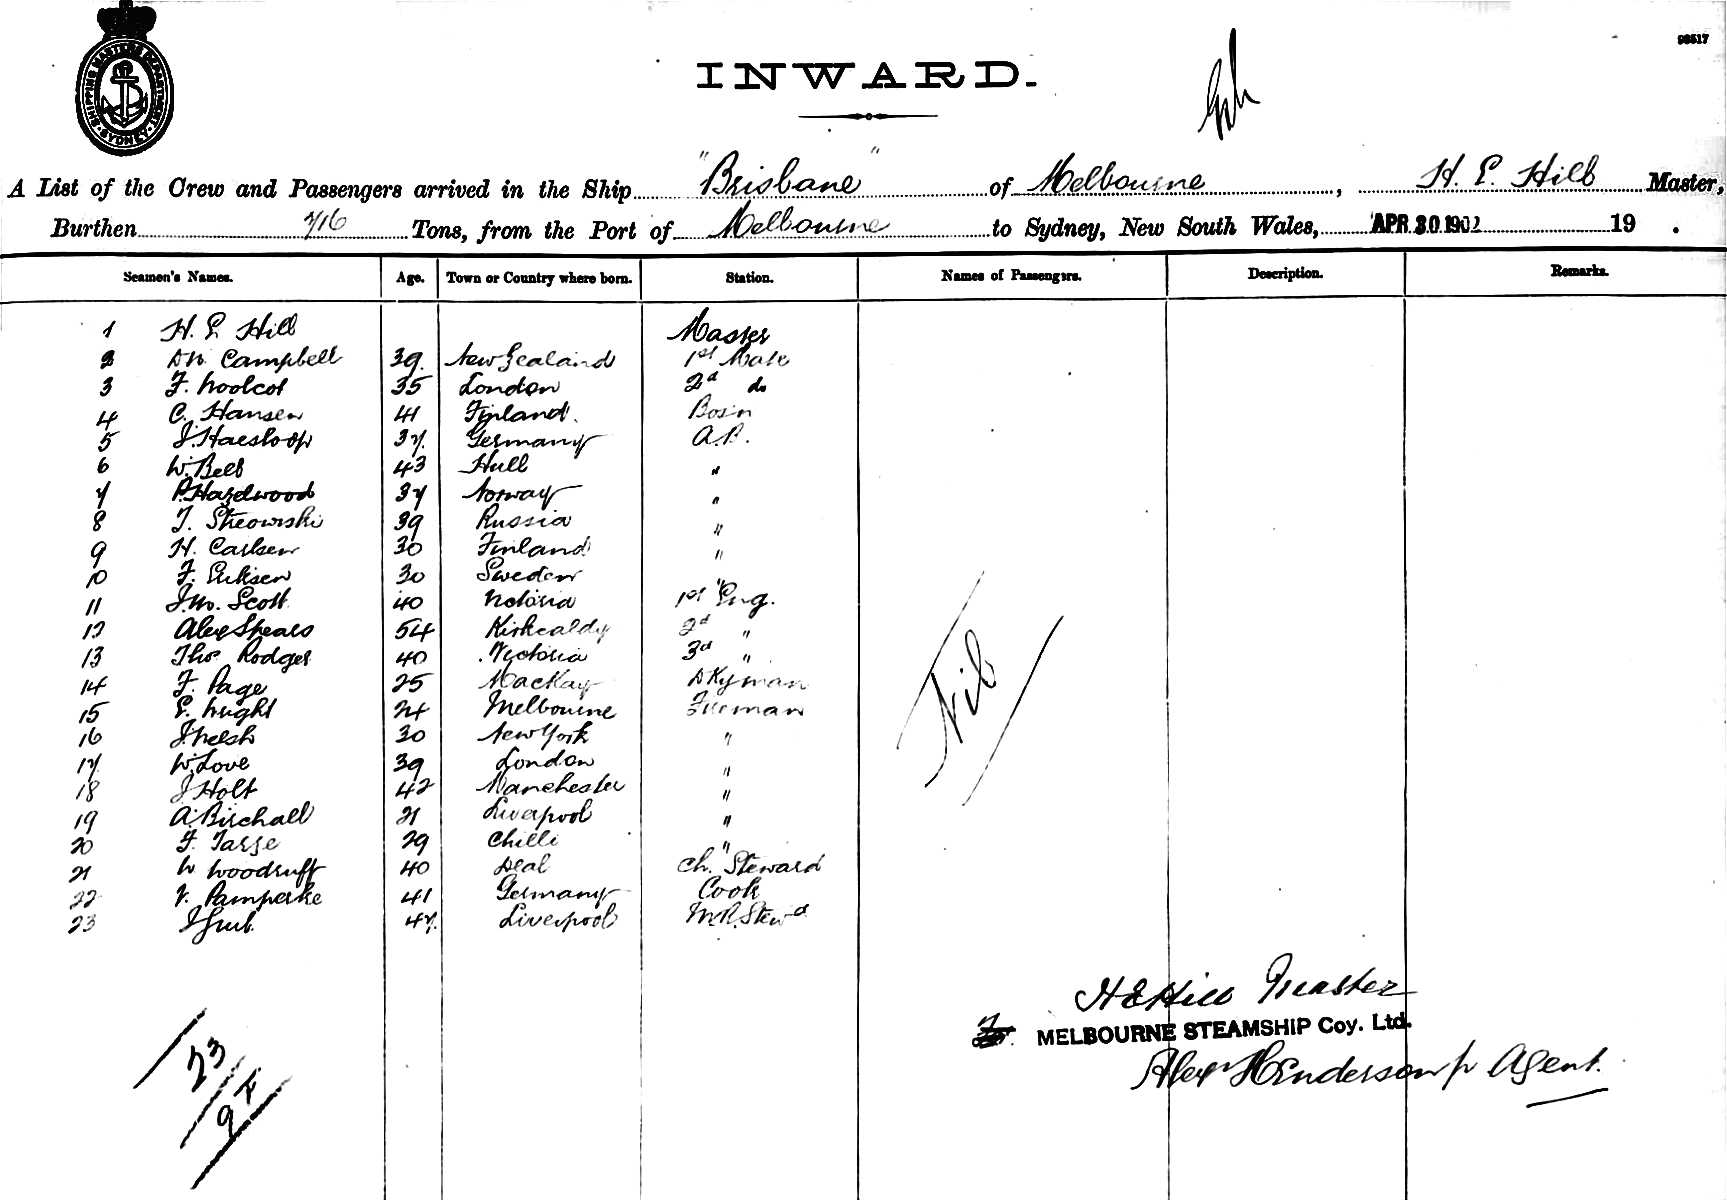 SHIPPING MASTERS DEPARTMENT SYDNEY
98517
INWARD.
A List of the Crew and Passengers arrived in the Ship "Brisbane" of Melbourne, H. E. Hill Master,
Burthen 716 Tons, from the Port of Melbourne to Sydney, New South Wales, APR 30 1902 19 .
Seamen's Names. Age. Town or Country where born. Station. Names of Passengers. Description. Remarks.
1 H. E. Hill Master
2 Campbell 39. New Zealand 1st Mate
3 F. Woolcot 35 London 2d do
4 C. Hansen 41 Finland. Bosn
5 37. Germany A.B.
6 W. Bell 43 Hull "
7 P. Hazelwood 37 Norway "
8 39 Russia "
9 H. Carlsen 30 Finland "
10 F. Eriksen 30 Sweden "
11 J. M. Scott 40 Victoria 1st Eng.
12 Alex Spears 54 Kirkcaldy 2d "
13 Thos Rodger 40 Victoria 3d "
14 F. Page 25 MacKay Dkyman
15 E. Wright 24 Melbourne Fireman
16 J. Welsh 30 New York "
17. W. Love 39 London "
18 J Holt 42 Manchester "
19 A. Birchall 21 Liverpool "
20 F. 29 Chilli "
21 W Woodruff 40 Deal Ch. Steward
22 Pamperke 41 Germany Cook
23 47. Liverpool M.R. Stewd
Nil
H E Hill Master
MELBOURNE STEAMSHIP Coy. Ltd.
Alex Henderson p Agent.
23